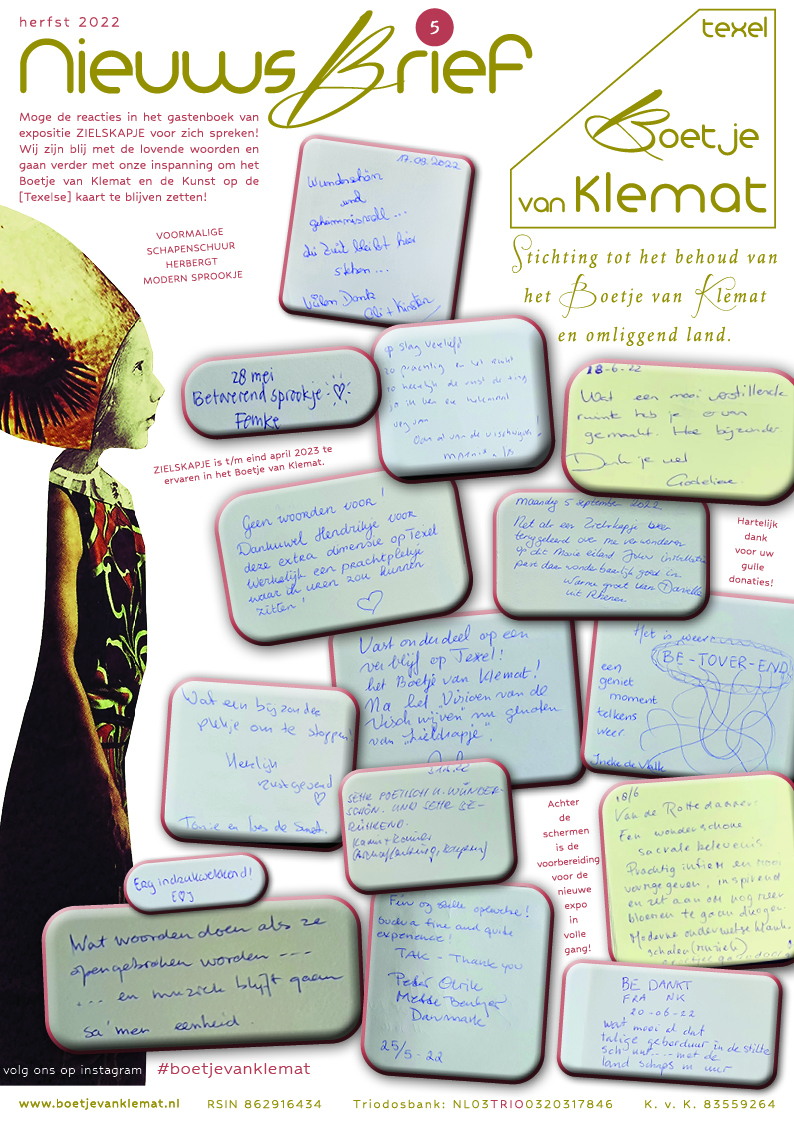 herfst 2022
NieuwsBrief
5
texel
Boetje
van Klemat
Moge de reacties in het gastenboek van
expositie ZIELSKAPJE voor zich spreken!
Wij zijn blij met de lovende woorden en
gaan verder met onze inspanning om het
Boetje van Klemat en de Kunst op de
[Texelse] kaart te blijven zetten!
VOORMALIGE
SCHAPENSCHUUR
HERBERGT
MODERN SPROOKJE
Stichting tot het behoud van
het Boetje van Klemat
en omliggend land.
17.09.2022
Wunderschön
und
geheimnisvoll...
die Zeit bleibt hier
stehen...
Vielen Dank
+ Kirsten
28 mei
Betoverend sprookje
Femke
op slag verliefd
zo prachtig en
zo heerlijk de rust
ja ik ben
weg van
18-6-22
Wat een mooi verstillende
ruimte heb je ervan
gemaakt. Hee bijzonder.
Dank je wel
Godelieve
ZIELSKAPJE is t/m eind april 2023 te
ervaren in het Boetje van Klemat.
Geen woorden voor!
Dankuwel Hendrikje voor
deze extra dimensie op Texel
Werkelijk een prachtplekje
waar ik uren zou kunnen
zitten!
maandag 5 september 2022
Net als een Zielskapje
over me verwonderen
op dit Mooie eiland Jouw installatie
past daar wonderbaarlijk goed in.
Warme groet van Daniella
uit Rhenen
Hartelijk
dank
voor uw
gulle
donaties!
Vast onderdeel op een
verblijf op Texel!
het Boetje van Klemat!
Na het "Visioen van de
Vischwijven" nu genoten
van "Zielskapje."
Het is weer
BE-TOVER-END
een
geniet
moment
telkens
weer
Ineke de
Wat een bijzonder
plekje om te stoppen!
Heerlijk
rustgevend
Tonie en
SEHR POETISCH U. WUNDER-
SCHÖN. UND SEHR BE-
RÜHREND.
Achter
de
schermen
is de
voorbereiding
voor de
nieuwe
expo
in
volle
gang!
18/6
Van de Rotterdammer:
Een wonderschone
sacrale belevenis
Prachtig intiem en mooi
vormgegeven, inspirerend
en zet aan om nog meer
bloemen te gaan drogen.
Moderne onderwetse klank
schalen (muziek)
Erg indrukwekkend!
E♡J
Wat woorden doen als ze
opengebroken worden ----
... en muziek blijft gaan
sa'men eenheid.
Fin og stille oplevelse!
Such a fine and quite
experience!
TAK - Thank you
Peter
Mette
Danmark
25/5-22
BE DANKT
FRA NK
20-06-22
wat mooi el dat
talige geborduur in de stilte
schuur.... met de
land schaps in uur
volg ons op instagram #boetjevanklemat
www.boetjevanklemat.nl RSIN 862916434 Triodosbank: NL03TRIO0320317846 K. v. K. 83559264